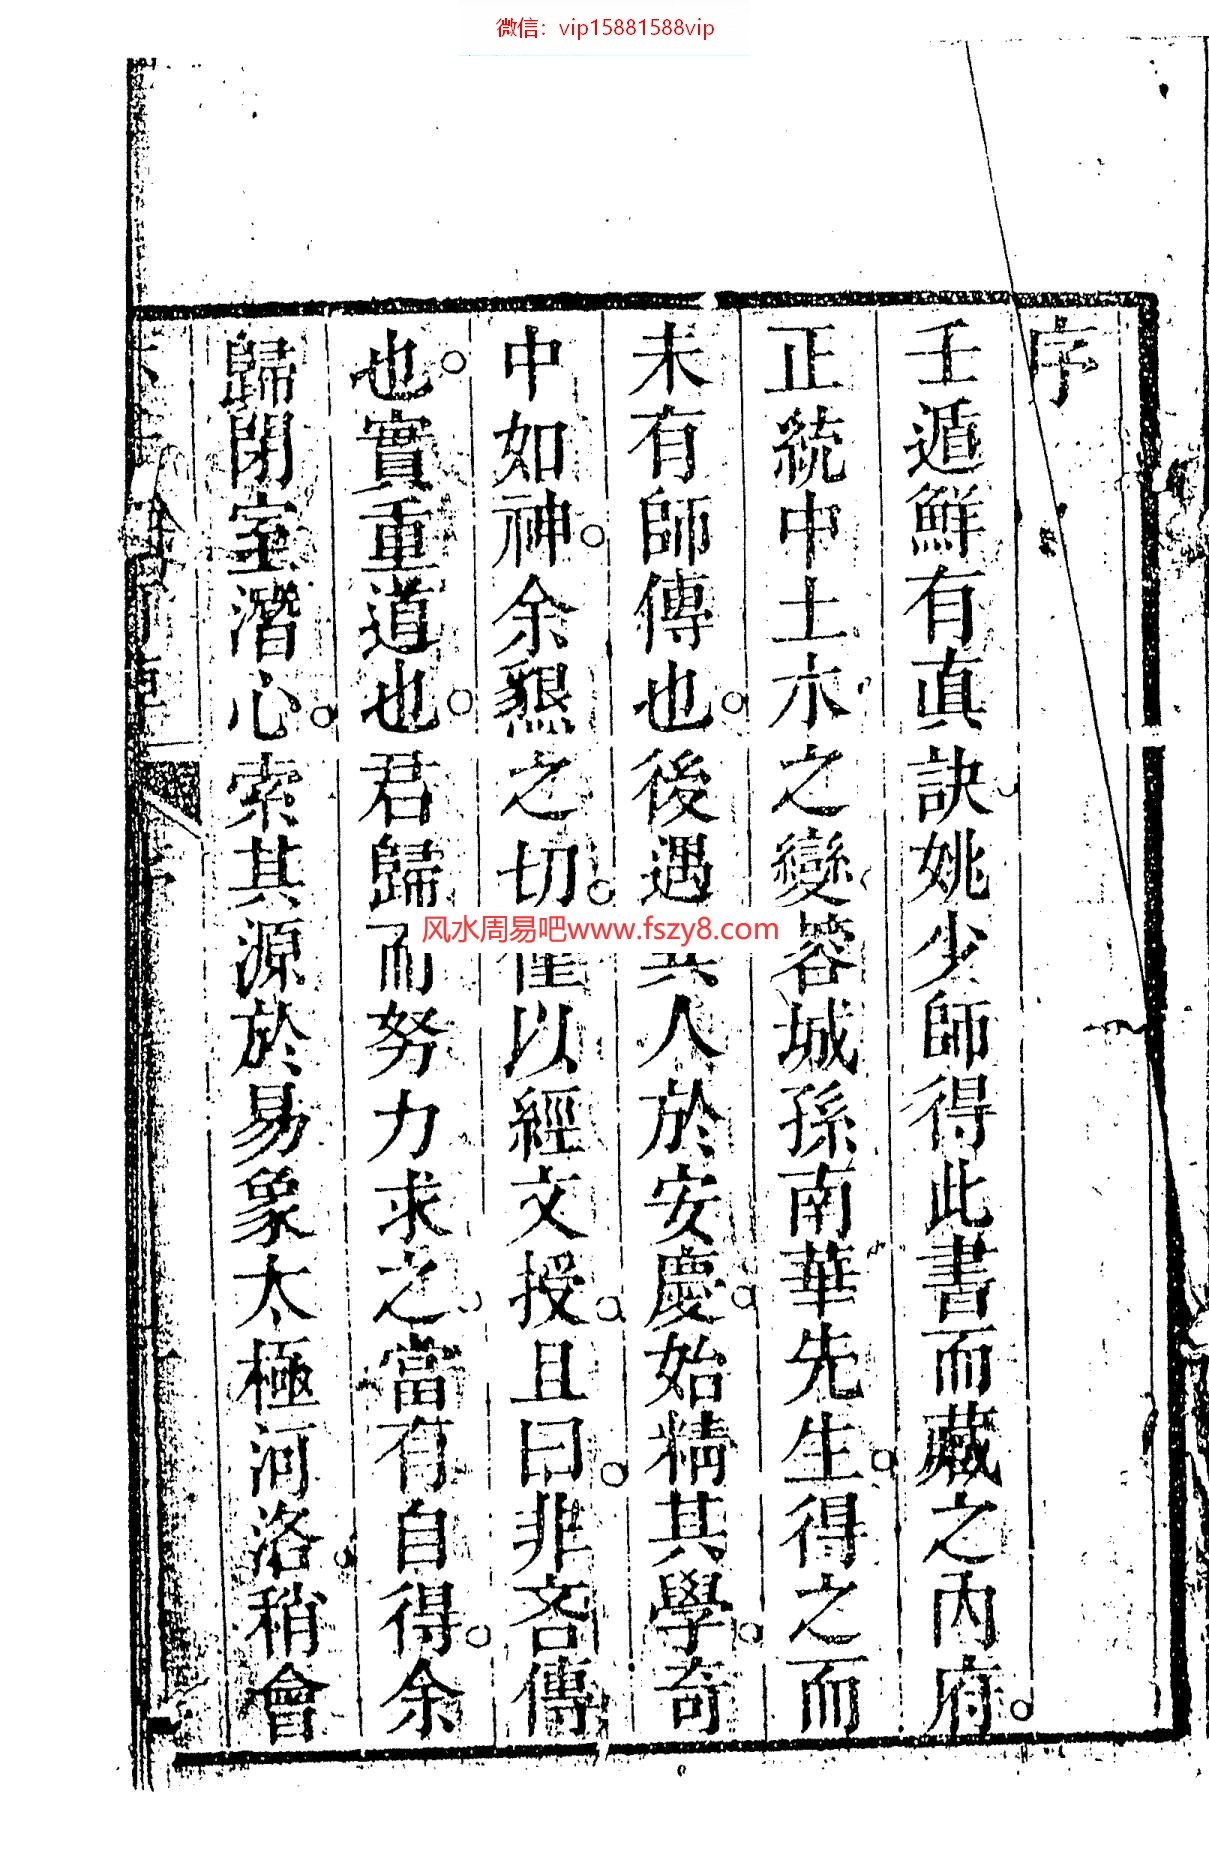 微信：vip15881588vip
序
壬遁鮮有真訣姚少師得此書而藏之內府
正統中土木之變蓉城孫南華先生得之而
未有師傳也後遇異人於安慶始精其學奇
中如神余懇之切僅以經文授且曰非吝傳
也實重道也君歸而努力求之當有自得余
歸閉室潛心索其源於易象太極河洛稍會
风水周易吧www.fszy8.com